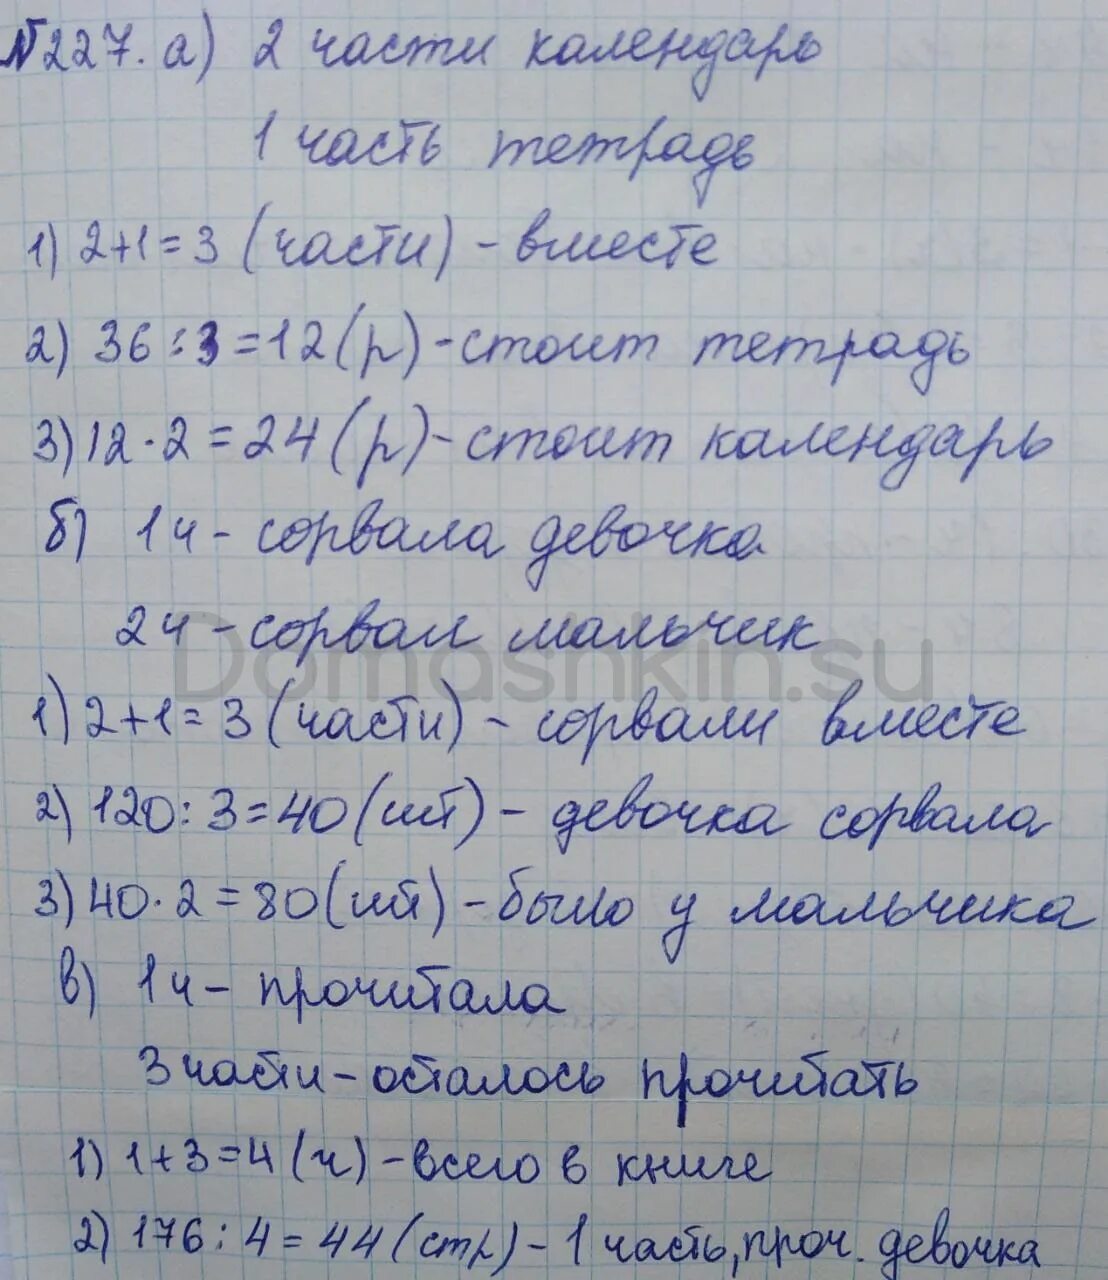 №227. а) 2 части календарь
1 часть тетрадь
1) 2+1=3 (части) - вместе
2) 36:3=12 (р) - стоит тетрадь
3) 12·2=24 (р) - стоит календарь
б) 1ч - сорвала девочка
2ч - сорвал мальчик
Domashkin.su
1) 2+1=3 (части) - сорвали вместе
2) 120:3=40 (шт) - девочка сорвала
3) 40·2=80 (шт) - было у мальчика
в) 1ч - прочитала
3 части - осталось прочитать
1) 1+3=4 (ч) - всего в книге
2) 176:4=44 (стр) - 1 часть, проч. девочка